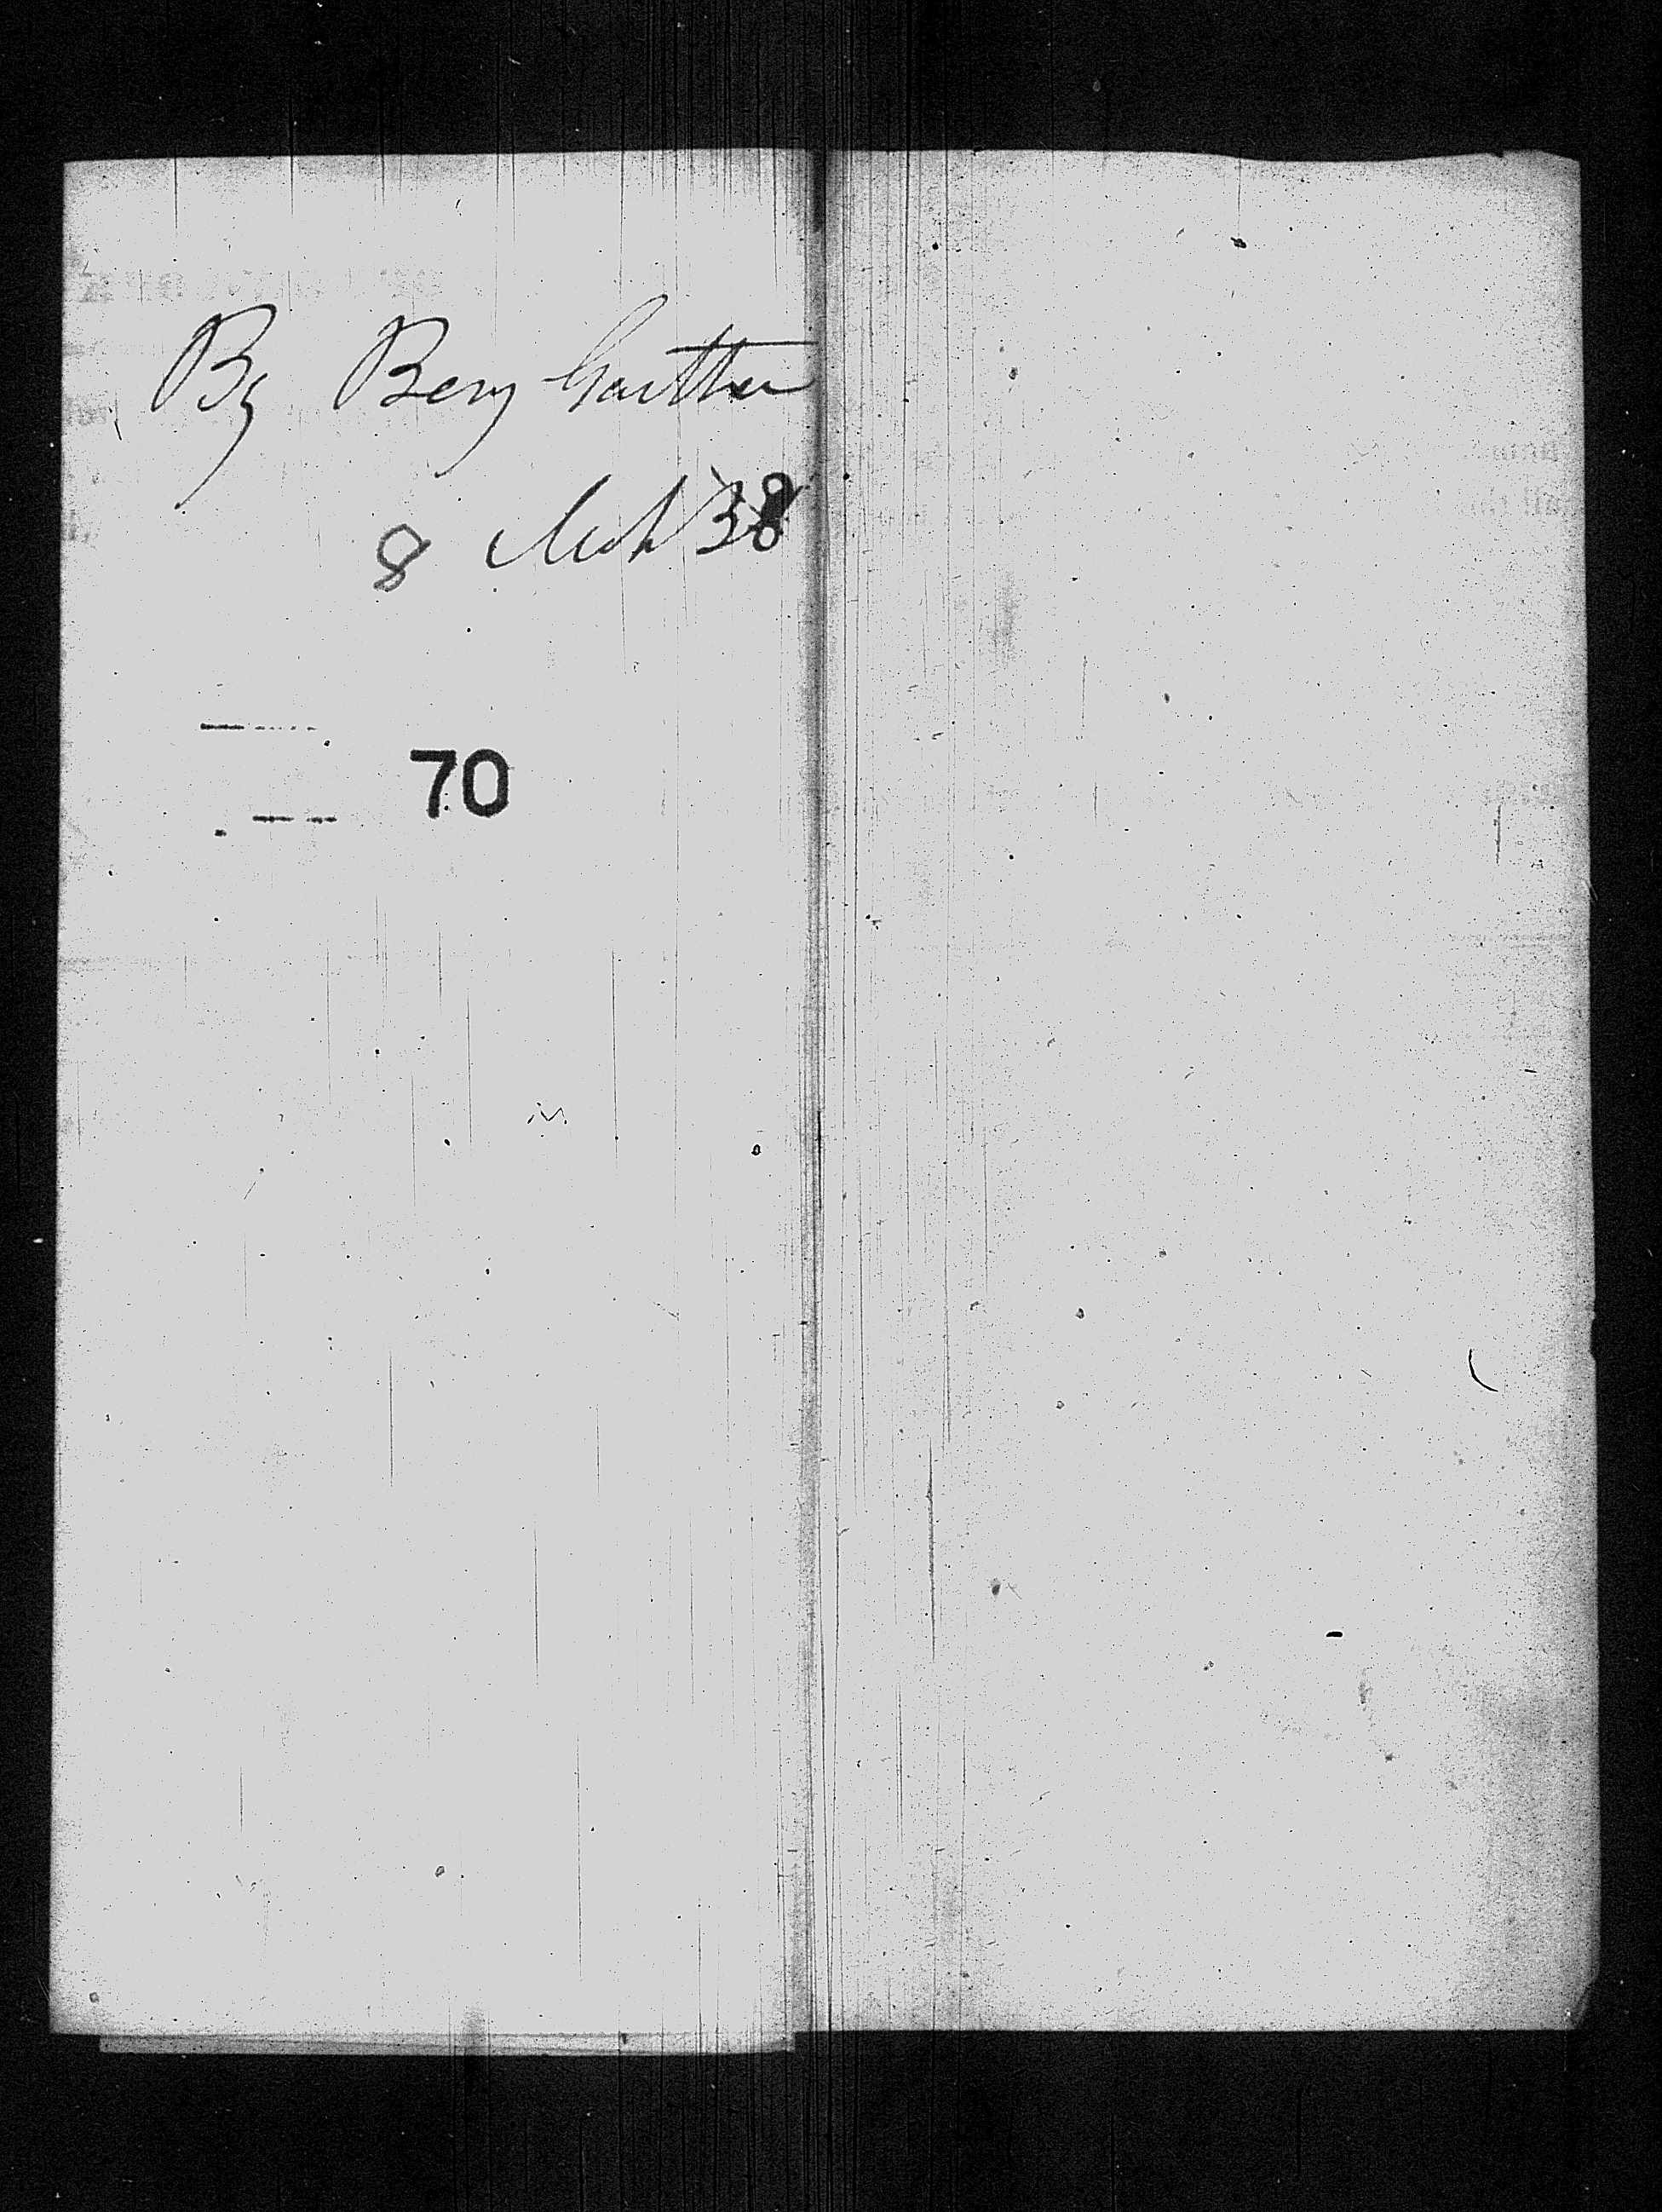 By Benj Gaither
8 Mch 38
70